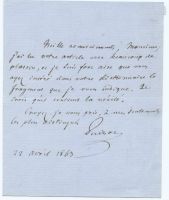 Mille remerciements, Monsieur,
J'ai lu votre article avec beaucoup de
plaisir, et je suis fort aise que vous
ayez inséré dans votre dictionnaire le
fragment que je vous indique. Je
crois que contient la vérité.
Croyez, je vous prie, à mes sentiments
les plus distingués
22 avril 1863